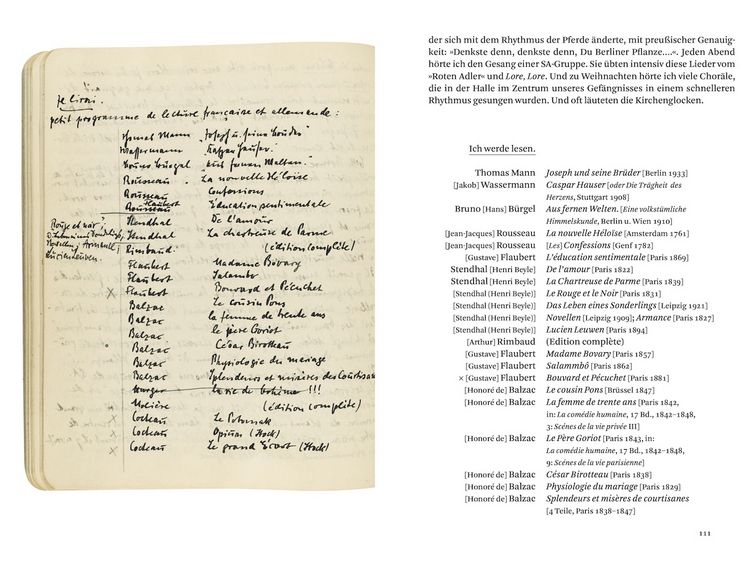 Je lirai.
petit programme de lecture française et allemande:
Thomas Mann "Joseph u. seine Brüder"
Wassermann "Caspar Hauser"
Bruno Bürgel "Aus fernen Welten."
Rousseau. La nouvelle Héloïse
Rousseau Confessions
Flaubert
Rousseau Education sentimentale
Stendhal De l'amour
Rouge et noir
Stendhal La chartreuse de Parme
Novellen; Armance
Lucien Leuwen
Rimbaud. (édition complète)
Flaubert Madame Bovary
Flaubert Salambo
x Flaubert Bouvard et Pécuchet
Balzac Le cousin Pons
Balzac la femme de trente ans
Balzac le père Goriot
Balzac César Birotteau
Balzac Physiologie du mariage
Balzac Splendeurs et misères des courtisanes
Murger la vie de bohème !!!
Molière (édition complète)
x Cocteau Le Potomak
x Cocteau Opium (Hock)
x Cocteau Le grand Écart (Hock)
der sich mit dem Rhythmus der Pferde änderte, mit preußischer Genauig-
keit: »Denkste denn, denkste denn, Du Berliner Pflanze….«. Jeden Abend
hörte ich den Gesang einer SA-Gruppe. Sie übten intensiv diese Lieder vom
»Roten Adler« und Lore, Lore. Und zu Weihnachten hörte ich viele Choräle,
die in der Halle im Zentrum unseres Gefängnisses in einem schnelleren
Rhythmus gesungen wurden. Und oft läuteten die Kirchenglocken.
Ich werde lesen.
Thomas Mann Joseph und seine Brüder [Berlin 1933]
[Jakob] Wassermann Caspar Hauser [oder Die Trägheit des
Herzens, Stuttgart 1908]
Bruno [Hans] Bürgel Aus fernen Welten. [Eine volkstümliche
Himmelskunde, Berlin u. Wien 1910]
[Jean-Jacques] Rousseau La nouvelle Héloïse [Amsterdam 1761]
[Jean-Jacques] Rousseau [Les] Confessions [Genf 1782]
[Gustave] Flaubert L'éducation sentimentale [Paris 1869]
Stendhal [Henri Beyle] De l'amour [Paris 1822]
Stendhal [Henri Beyle] La Chartreuse de Parme [Paris 1839]
[Stendhal (Henri Beyle)] Le Rouge et le Noir [Paris 1831]
[Stendhal (Henri Beyle)] Das Leben eines Sonderlings [Leipzig 1921]
[Stendhal (Henri Beyle)] Novellen [Leipzig 1909]; Armance [Paris 1827]
[Stendhal (Henri Beyle)] Lucien Leuwen [Paris 1894]
[Arthur] Rimbaud (Edition complète)
[Gustave] Flaubert Madame Bovary [Paris 1857]
[Gustave] Flaubert Salammbô [Paris 1862]
× [Gustave] Flaubert Bouvard et Pécuchet [Paris 1881]
[Honoré de] Balzac Le cousin Pons [Brüssel 1847]
[Honoré de] Balzac La femme de trente ans [Paris 1842,
in: La comédie humaine, 17 Bd., 1842–1848,
3: Scénes de la vie privée III]
[Honoré de] Balzac Le Père Goriot [Paris 1843, in:
La comédie humaine, 17 Bd., 1842–1848,
9: Scénes de la vie parisienne]
[Honoré de] Balzac César Birotteau [Paris 1838]
[Honoré de] Balzac Physiologie du mariage [Paris 1829]
[Honoré de] Balzac Splendeurs et misères de courtisanes
[4 Teile, Paris 1838–1847]
111